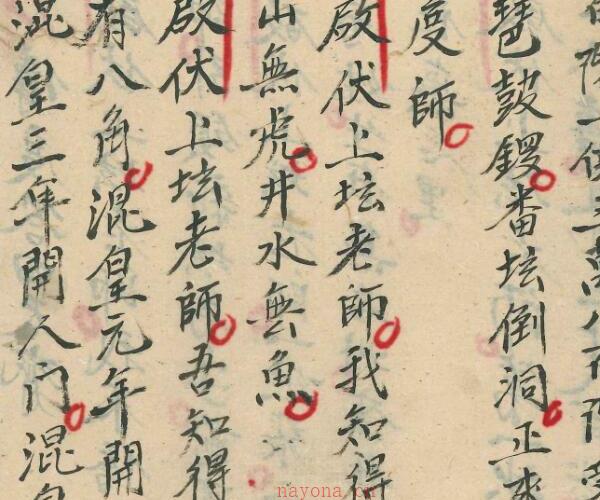 一 三萬八千
琶鼓鑼番坛倒洞正來
度師
啟伏上坛老師我知得
山無虎井水無魚
啟伏上坛老師吾知得
有八角混皇元年開
混皇三年開人门混皇
nayona.cn